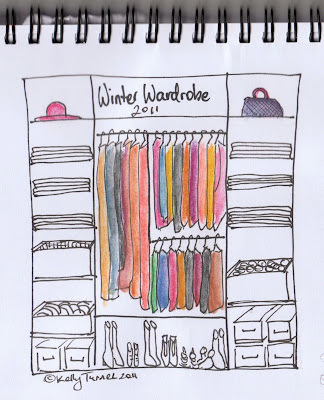 Winter Wardrobe
2011
©Kelly 2011